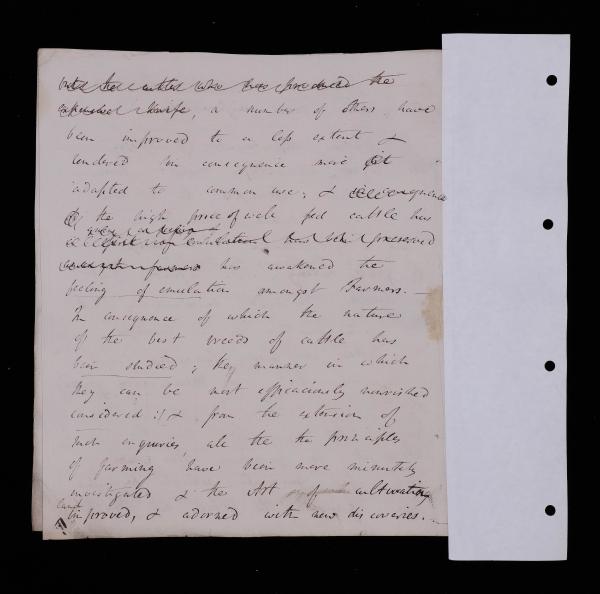 the cattle who has produced the
knife, a number of others have
been improved to a less extent &
rendered in consequence more fit
adapted to common use; &
the high price of well fed cattle has
preserved
has awakened the
feeling of emulation amongst Farmers. —
In consequence of which the nature
of the best breeds of cattle has
been studied; they manner in which
they can be most efficaciously nourished
considered :/ & from the extension of
such enquiries, all the the principles
of farming have been more minutely
investigated & the Art of cultivating
land
improved, & adorned with new discoveries. —